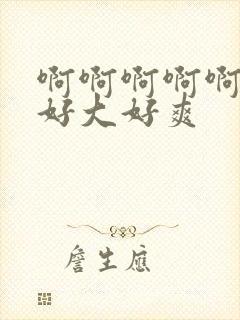 啊啊啊啊啊
好大好爽
詹生應